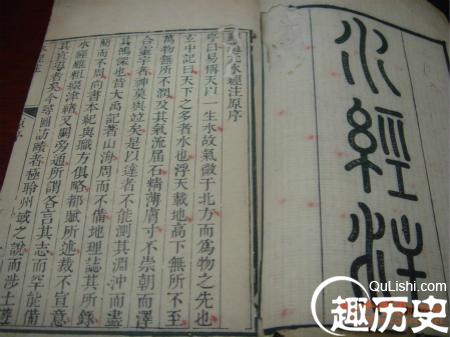 水經注
水經注原序
序曰易稱天以一生水故氣微于北方而為物之先也
玄中記曰天下之多者水也浮天載地高下無所不至
萬物無所不潤及其氣流屆石精薄膚寸不崇朝而澤
合靈宇者神莫與竝矣是以達者不能測其淵沖而盡
其鴻深也昔大禹記著山海周而不備地理誌其所錄
簡而不周尚書本紀與職方俱略都賦所述裁不宣意
水經雖粗綴津緒又闕旁通所謂各言其志而罕能備
其宣導者矣今尋圖訪賾者極聆州域之說而涉土遊
QuLishi.com
趣历史